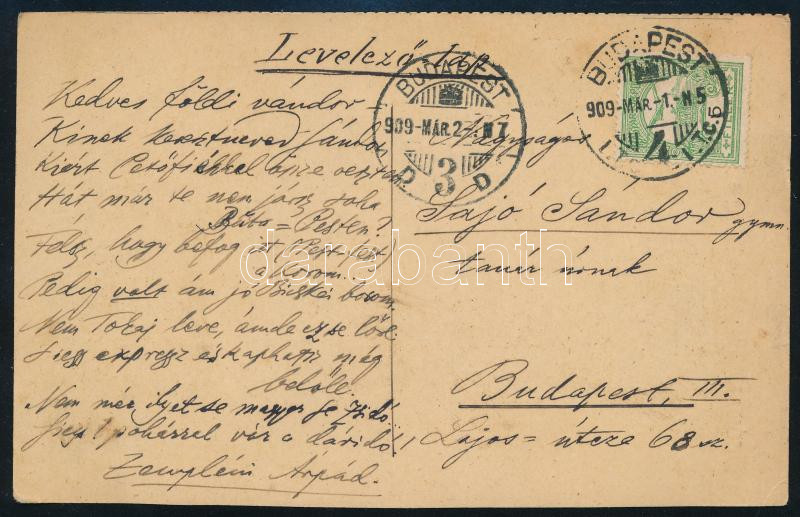 Levelező-lap
Kedves földi vándor –
Kinek keresztneved Sándor
Kiért Petőfiékkel össze vesztem
Hát már te nem jársz soha
Buda = Pesten?
Félsz, hogy befog itt (Pest-fest)
a Korom?
Pedig volt ám jó Bicskei borom.
Nem Tokaj leve, ámde ez se lőre
Siess expressz és kaphatsz még
belőle.
Nem mér ilyet se magyar se zsidó
Siess! pohárral vár a dáridó!
Zempléni Árpád.
BUDAPEST
909-MÁR.2-N7
D 3 D
BUDAPEST
909-MÁR.-1.-N5
4
Nagyságos
Sajó Sándor gymn.
tanár úrnak
Budapest, III.
Lajos = útcza 68 sz.
darabanth